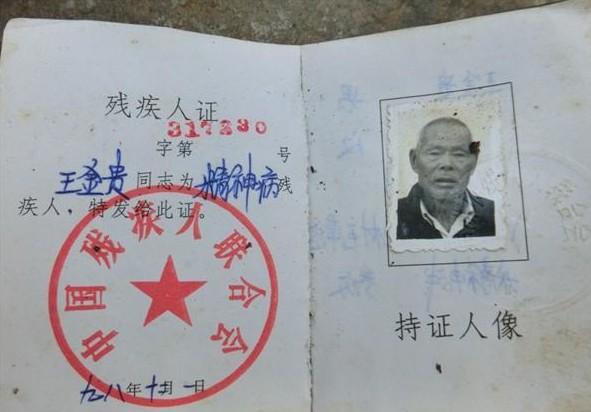 残疾人证
317330
字第 号
王金贵同志为精神病残
疾人，特发给此证。
中国残疾人联合会
九八年十月一日
持证人像